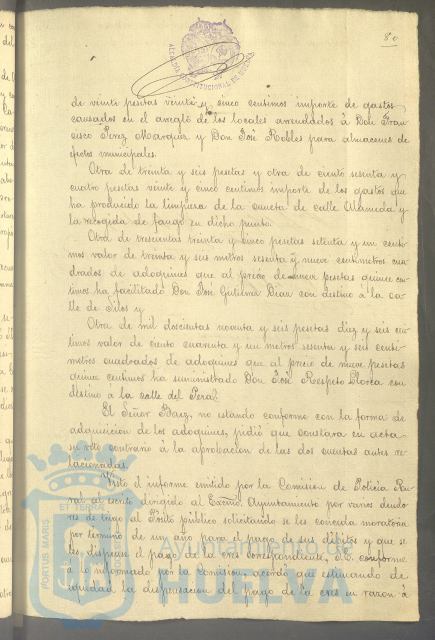 80
ALCALDIA CONSTITUCIONAL DE HUELVA
de veinte pesetas veinte y cinco centimos importe de gastos
causados en el arreglo de los locales arrendados á Don Fran
cisco Perez Marquez y Don José Robles para almacenes de
efectos municipales.
Otra de treinta y seis pesetas y otra de ciento sesenta y
cuatro pesetas veinte y cinco centimos importe de los gastos que
ha producido la limpieza de la cuneta de calle Alameda y
la recogida de fango en dicho punto.
Otra de trescientas treinta y cinco pesetas setenta y un centi
mos valor de treinta y seis metros sesenta y nueve centimetros cua
drados de adoquines que al precio de nueve pesetas quince cen
timos ha facilitado Don José Gutierrez Diaz con destino á la ca
lle de Silos y
Otra de mil doscientas noventa y seis pesetas diez y seis cen
timos valor de ciento cuarenta y un metros sesenta y seis centi
metros cuadrados de adoquines que al precio de nueve pesetas
quince centimos ha suministrado Don José Llorca con
destino á la calle del Peral.
El Señor Baez, no estando conforme con la forma de
adquisicion de los adoquines, pidió que constara en acta
su voto contrario á la aprobacion de las dos cuentas antes re
lacionadas.
Visto el informe emitido por la Comision de Policia Ru
ral al escrito dirigido al Excmo. Ayuntamiento por varios deudo
res de trigo al Posito público solicitando se les conceda moratoria
por termino de un año para el pago de sus débitos y que se
les dispense el pago de las creces correspondiente, S.E. conforme
á lo informado por la Comision acordó que estimando de
equidad la dispensacion del pago de las creces en razón á
PORTUS MARIS ET TERRAE CUSTODIA
Ayuntamiento de
HUELVA